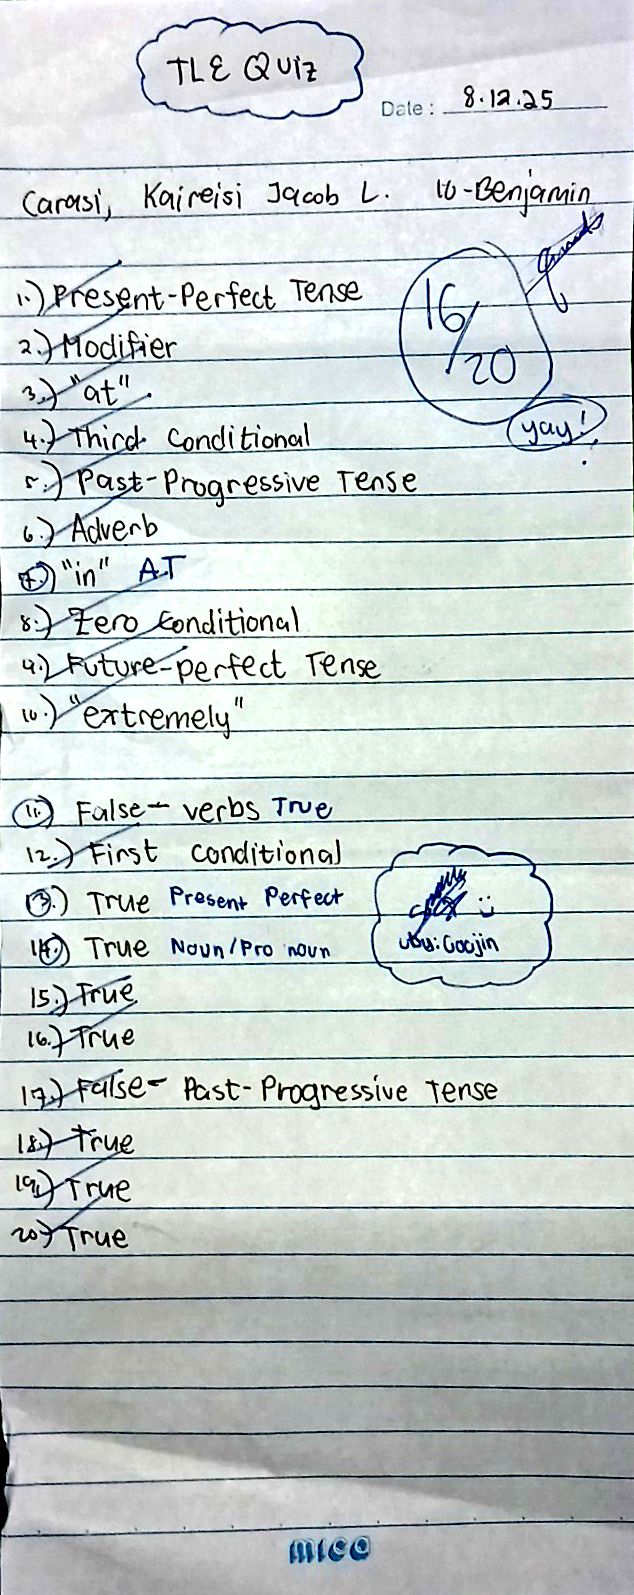 TLE QUIZ
Date: 8.12.25
Carasi, Kaireisi Jacob L. 10-Benjamin
1.) Present-Perfect Tense
16/20
2.) Modifier
3.) "at"
yay!
4.) Third Conditional
5.) Past-Progressive Tense
6.) Adverb
7.) "in" AT
8.) Zero Conditional
9.) Future-perfect Tense
10.) "extremely"
11.) False- verbs True
12.) First conditional
13.) True Present Perfect
14.) True Noun/Pronoun
15.) True
16.) True
17.) False- Past-Progressive Tense
18.) True
19.) True
20.) True
mico